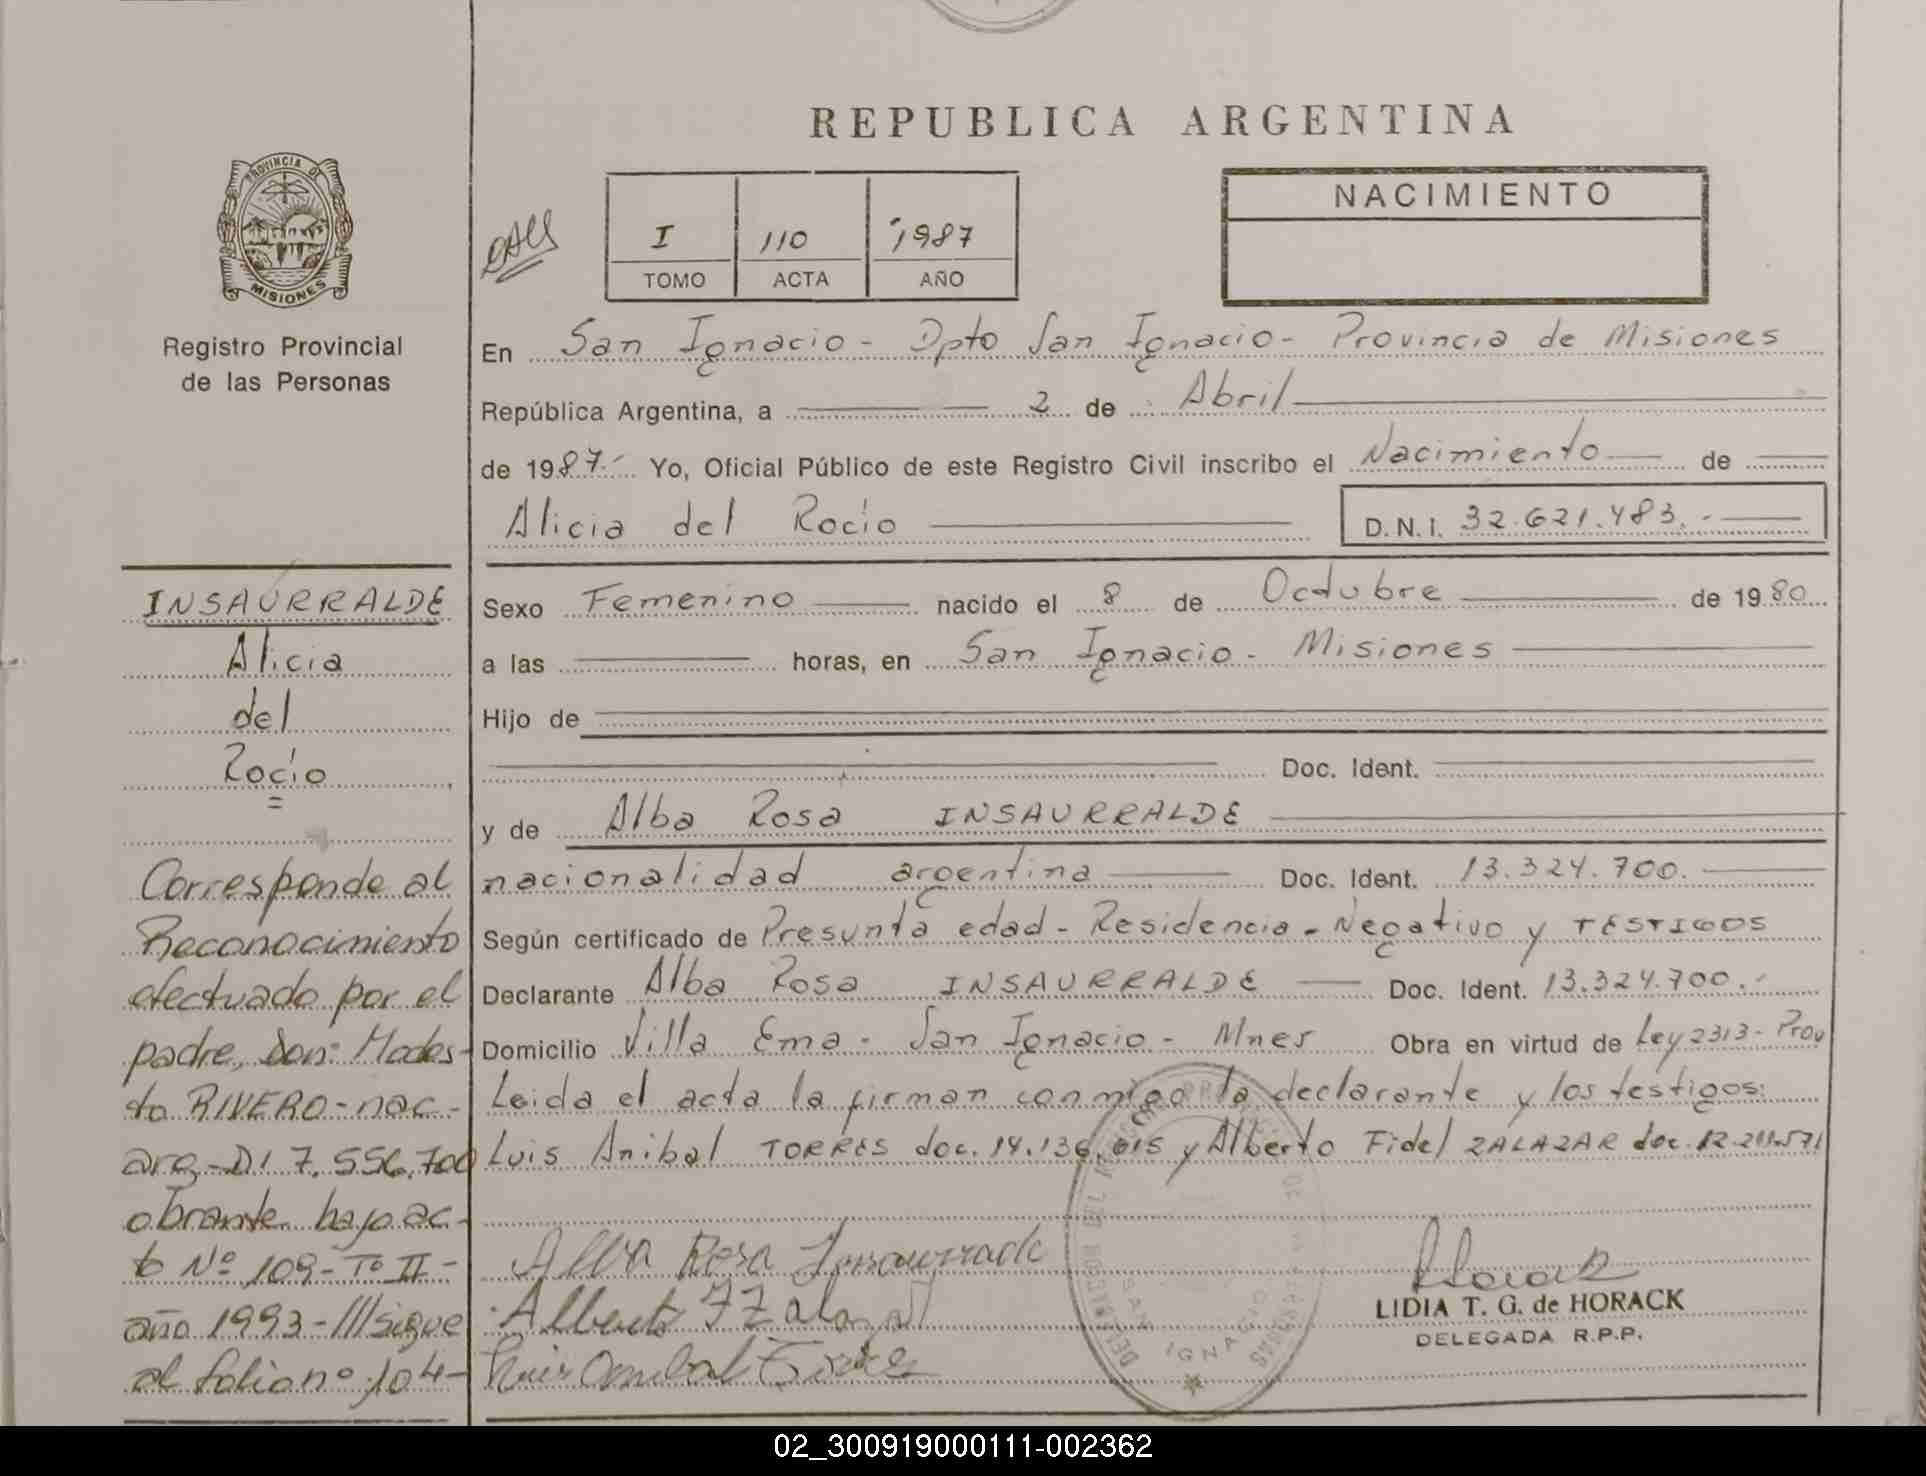 REPUBLICA ARGENTINA
PROVINCIA DE
MISIONES
Registro Provincial
de las Personas
I 110 1987
TOMO ACTA AÑO
NACIMIENTO
En San Ignacio - Dpto San Ignacio - Provincia de Misiones
República Argentina, a 2 de Abril
de 1987.- Yo, Oficial Público de este Registro Civil inscribo el Nacimiento de
Alicia del Rocío D.N.I. 32.621.483.-
Sexo Femenino nacido el 8 de Octubre de 1980
a las horas, en San Ignacio - Misiones
Hijo de
Doc. Ident.
y de Alba Rosa INSAURRALDE
nacionalidad argentina Doc. Ident. 13.324.700.
Según certificado de Presunta edad - Residencia - Negativo y TESTIGOS
Declarante Alba Rosa INSAURRALDE Doc. Ident. 13.324.700.-
Domicilio Villa Ema - San Ignacio - Mnes Obra en virtud de Ley 2313 - Prov
Leida el acta la firman conmigo la declarante y los testigos:
Luis Anibal TORRES doc. 14.136.015 y Alberto Fidel ZALAZAR doc. 12.211.571
Alba Rosa Insaurralde
LIDIA T. G. de HORACK
DELEGADA R.P.P.
SAN IGNACIO
INSAURRALDE
Alicia
del
Rocío
=
Corresponde al
Reconocimiento
efectuado por el
padre, Don: Modes-
to RIVERO - nac -
arg - DI 7.556.700
obrante bajo ac-
ta Nº 109 - Tº II -
año 1993 - /// sigue
al folio nº 104 -
02_300919000111-002362